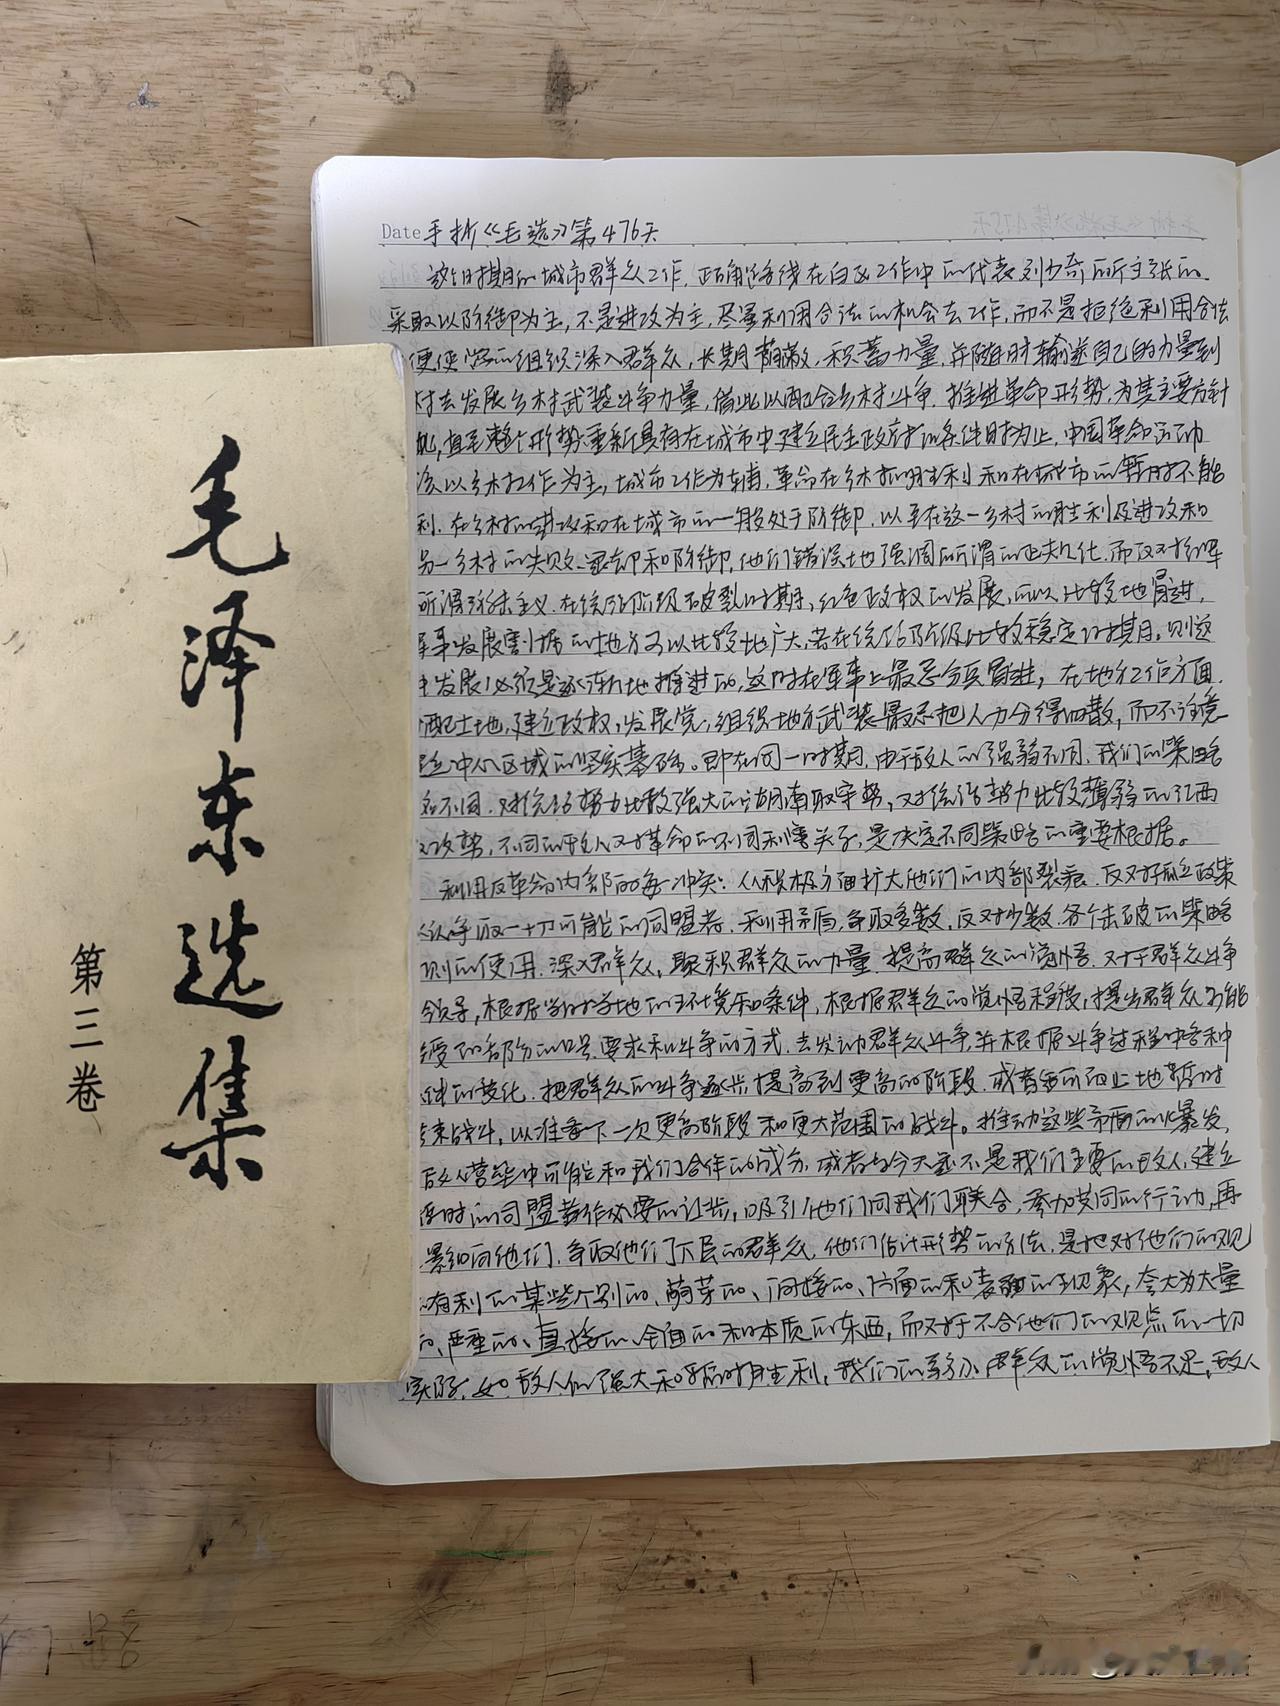 毛泽东选集
第三卷
Date 手抄《毛选》第476天
这个时期的城市群众工作,正确路线在白区工作中的代表刘少奇所主张的.
采取以防御为主,不是进攻为主,尽量利用合法的机会去工作,而不是拒绝利用合法
便使党的组织深入群众,长期荫蔽,积蓄力量,并随时输送自己的力量到
村去发展乡村武装斗争力量,借此以配合乡村斗争.推进革命形势,为其主要方针
此,直至整个形势重新具有在城市中建立民主政府的条件时为止,中国革命运动
该以乡村工作为主,城市工作为辅.革命在乡村的胜利和在城市的暂时不能
利.在乡村的进攻和在城市的一般处于防御.以至在这一乡村的胜利及进攻和
另一乡村的失败、退却和防御,他们错误地强调所谓的正规化.而反对
所谓 主义.在统治阶级破裂的时期,红色政权的发展,可以比较地冒进,
军事发展割据的地方可以比较地广大,若在统治阶级比较稳定的时期,则这
中发展必须是逐渐地推进的,这时在军事上最忌分兵冒进,在地方工作方面.
配土地,建立政权,发展党,组织地方武装最忌把人力分得四散,而不注意
立中心区域的坚实基础。即在同一时期,由于敌人的强弱不同,我们的策略
不同.对统治势力比较强大的湖南取守势,对统治势力比较薄弱的江西
攻势,不同的敌人对革命的不同利害关系,是决定不同策略的重要根据。
利用反革命内部的每一冲突:从积极方面扩大他们的内部裂痕.反对孤立政策
争取一切可能的同盟者.利用矛盾,争取多数,反对少数.各个击破的策略
则的使用.深入群众,聚积群众的力量.提高群众的觉悟.对于群众斗争
领导,根据当时当地的环境和条件,根据群众的觉悟程度,提出群众可能
受的部份的口号、要求和斗争的方式.去发动群众斗争,并根据斗争过程中各种
件的变化.把群众的斗争逐步提高到更高的阶段.或者 地暂时
束战斗,以准备下一次更高阶段和更大范围的战斗。推动这些 爆发,
敌人营垒中可能和我们合作的成分.或者 今天 不是我们主要的敌人,建立
时的同盟 作必要的让步,吸引他们同我们联合,参加共同的行动,再
影响他们.争取他们下层的群众,他们估计形势的方法,是把对他们的观
有利的某些个别的、萌芽的、间接的、片面的和表面的现象,夸大为大量
的、严重的、直接的、全面的和本质的东西,而对于不合他们的观点的一切
实际.如敌人的强大和暂时胜利,我们的弱小.群众的觉悟不足,敌人